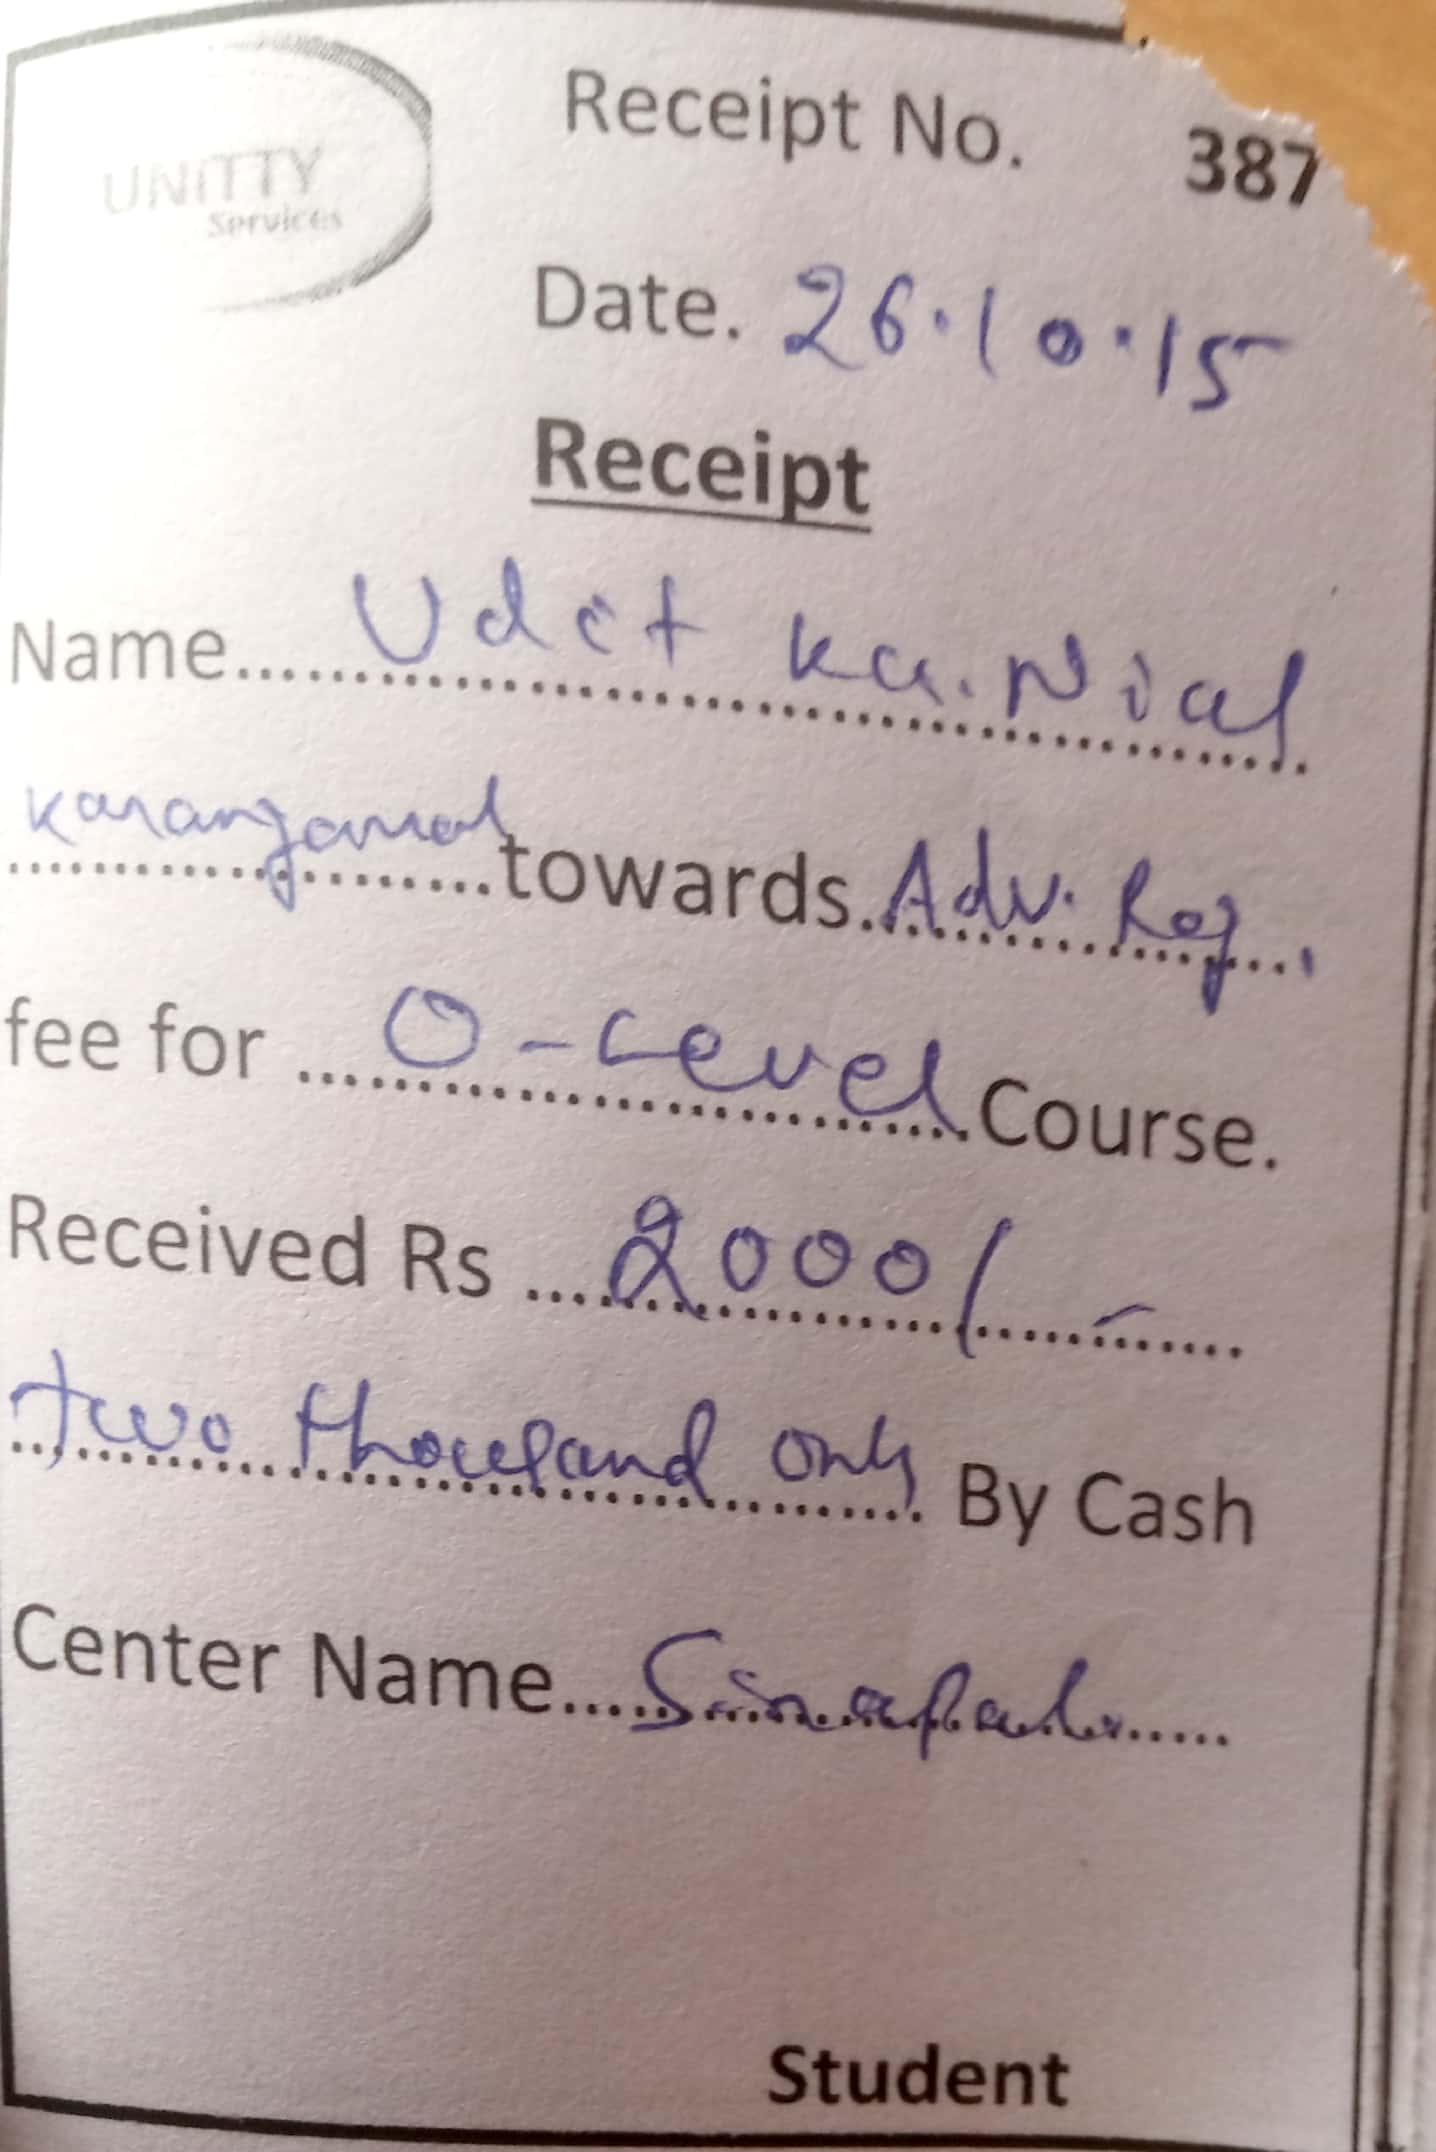 UNiTTY
Services
Receipt No. 387
Date. 26.10.15
Receipt
Name.... Udit Ku. Nial
Karanjamal towards. Adv. Reg.
fee for .... O-Level Course.
Received Rs .... 2000/-
two thousand only By Cash
Center Name.... Sinapali
Student